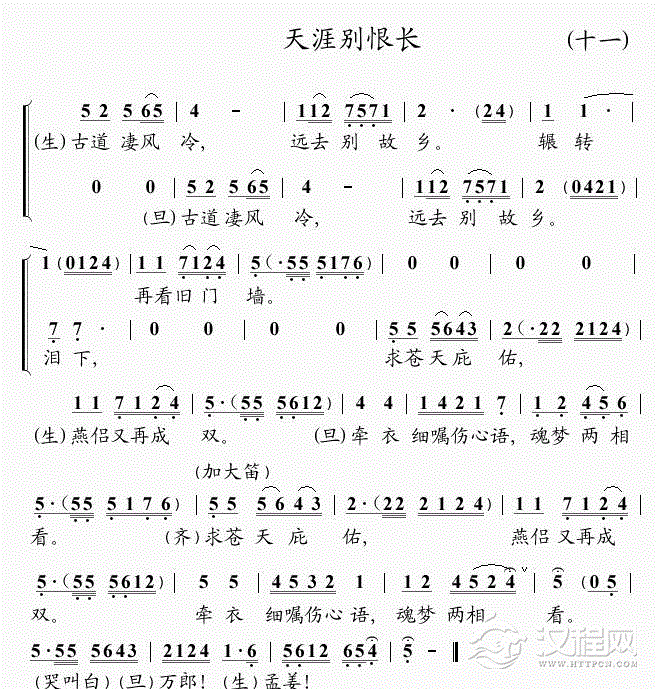 天涯别恨长 (十一)
5 2 5 6 5 | 4 - | 1 1 2 7 5 7 1 | 2 · (2 4) | 1 1 ·
(生)古道 凄风 冷, 远去 别 故 乡。 辗 转
0 0 | 5 2 5 6 5 | 4 - | 1 1 2 7 5 7 1 | 2 (0 4 2 1)
(旦)古道 凄风 冷, 远去 别 故 乡。
1 (0 1 2 4) | 1 1 7 1 2 4 | 5 (· 5 5 5 1 7 6) | 0 0 | 0 0
再看旧门 墙。
7 7 · | 0 0 | 0 0 | 5 5 5 6 4 3 | 2 (· 2 2 2 1 2 4)
泪 下, 求苍 天 庇 佑,
1 1 7 1 2 4 | 5 · (5 5 5 6 1 2) | 4 4 | 1 4 2 1 7 | 1 2 4 5 6
(生)燕侣又再成 双。 (旦)牵 衣 细嘱伤心语, 魂梦 两 相
(加大笛)
5 · (5 5 5 1 7 6) | 5 5 5 6 4 3 | 2 · (2 2 2 1 2 4) | 1 1 7 1 2 4
看。 (齐)求苍 天 庇 佑, 燕侣 又再成
5 · (5 5 5 6 1 2) | 5 5 | 4 5 3 2 1 | 1 2 4 5 2 4 | 5 (0 5)
双。 牵 衣 细嘱伤心 语, 魂梦 两相 看。
5 · 5 5 5 6 4 3 | 2 1 2 4 1 · 6 | 5 6 1 2 6 5 4 | 5 - ‖
(哭叫白)(旦)万郎! (生)孟姜!
汉程网
HTTPCN.COM